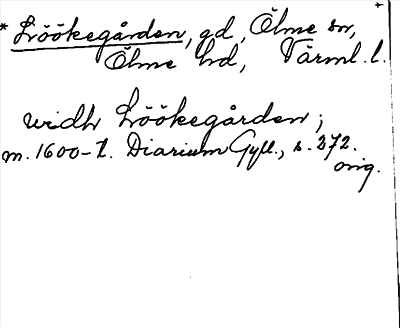 * Lröökegården, gd, Ölme sn,
Ölme hd, Värml. l.
widh Lröökegården;
m. 1600-t. Diarium Gyll., s. 272.
orig.